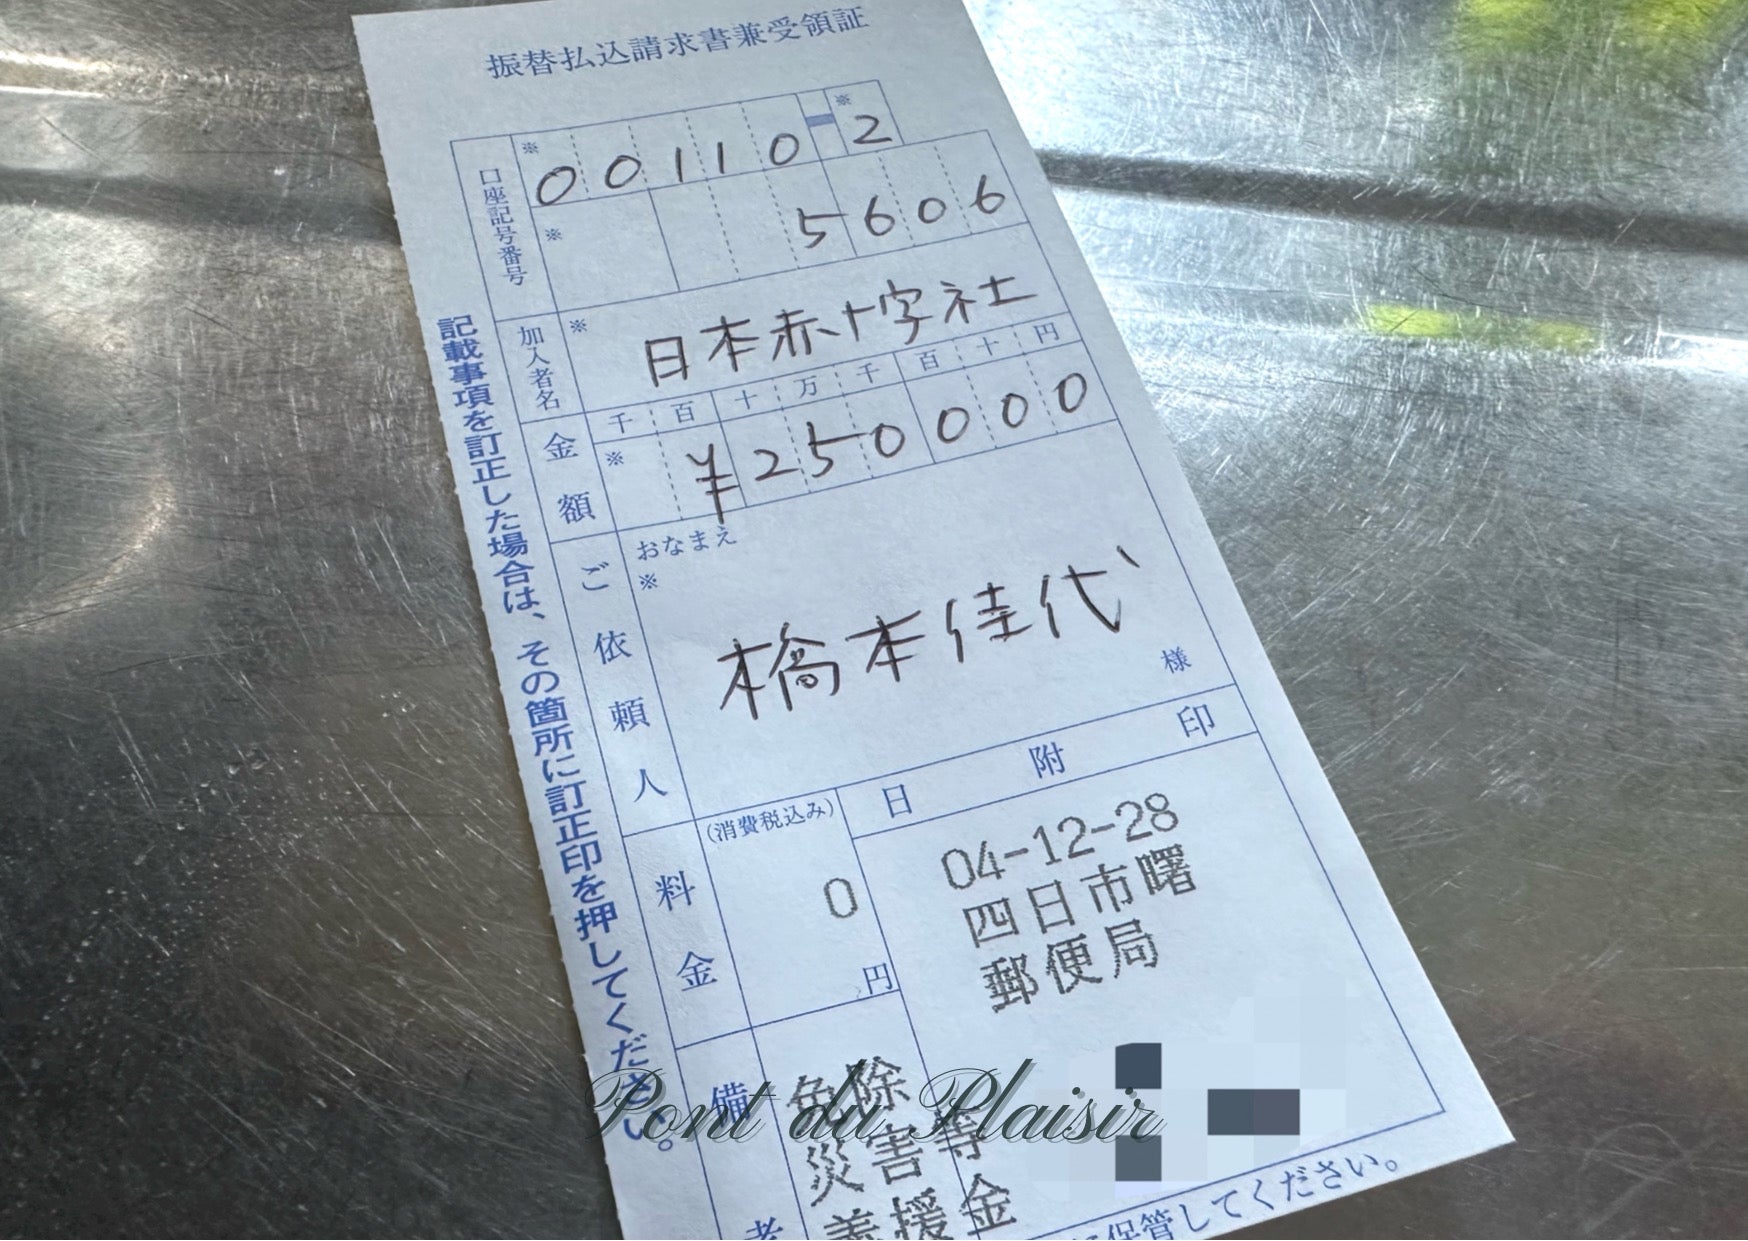 振替払込請求書兼受領証
口座記号番号
※
00110-2
※
※
5606
加入者名
※
日本赤十字社
金額
千百十万千百十円
※
¥250000
ご依頼人
おなまえ
※
橋本佳代
様
料金
(消費税込み)
0
円
日附印
04-12-28
四日市曙
郵便局
備考
免除
災害等
義援金
記載事項を訂正した場合は、その箇所に訂正印を押してください。
保管してください。
Pont du Plaisir